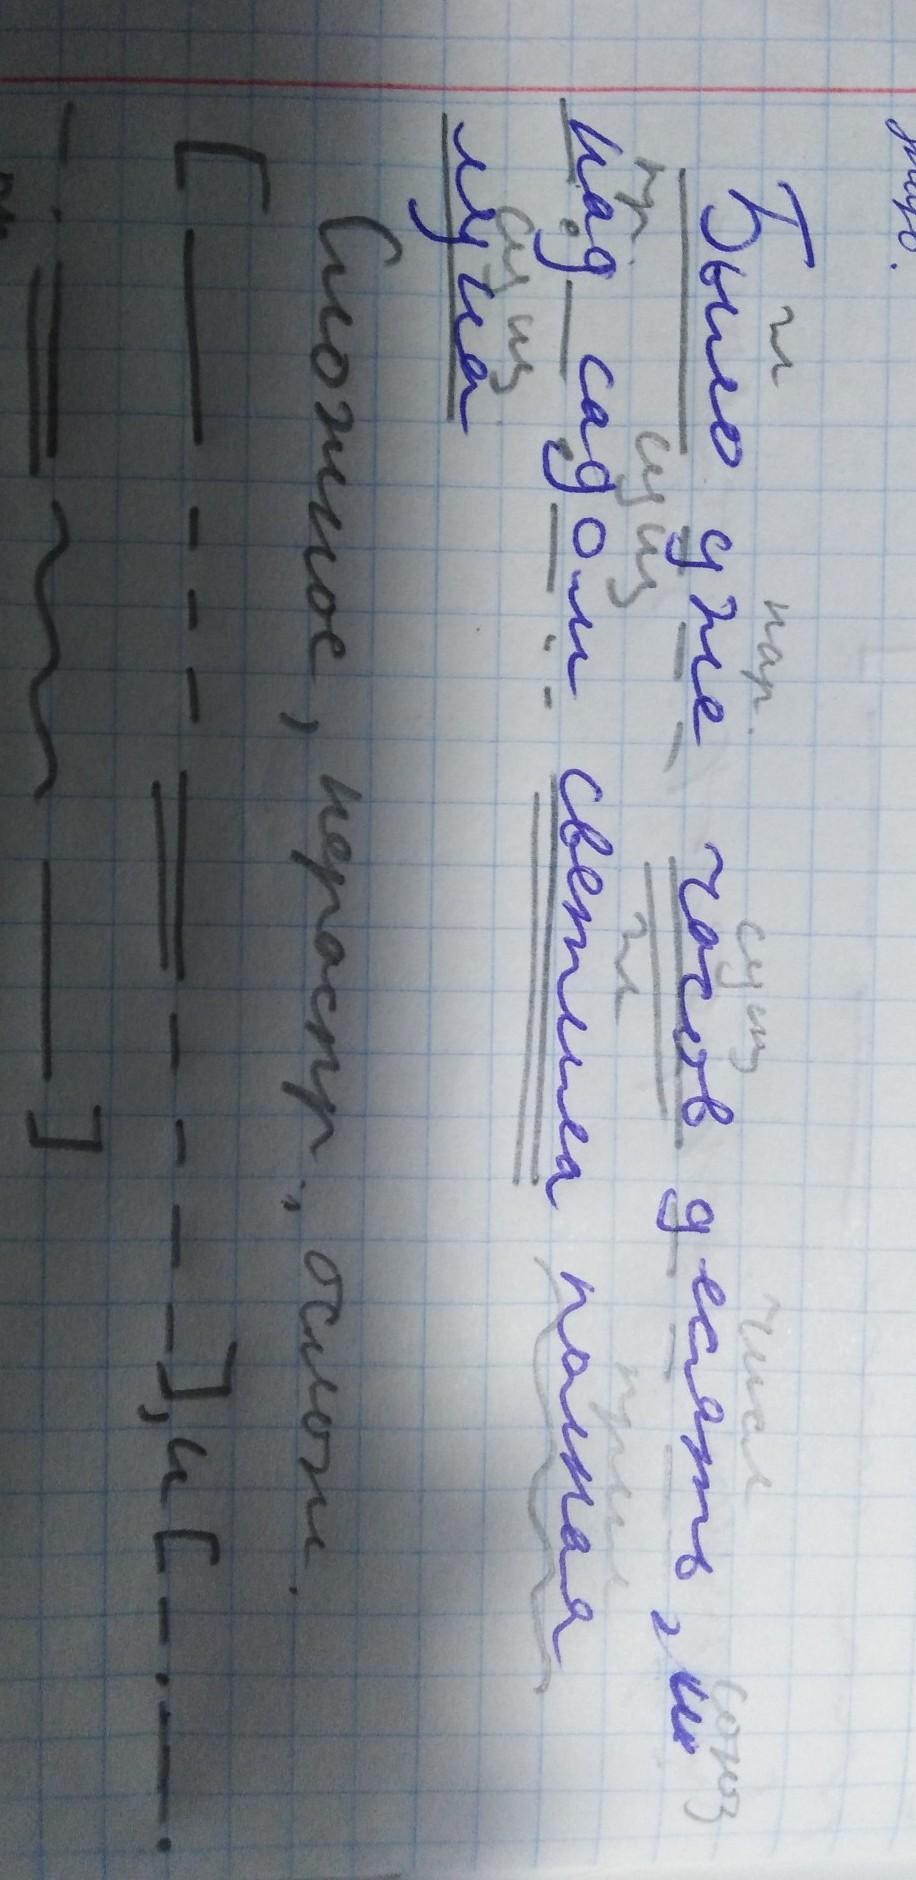 гл нар. сущ числ союз
Было уже часов десять, и
пр. сущ гл прил
над садом светила полная
сущ
луна
Сложное, нераспр., ослож.
], и [
]